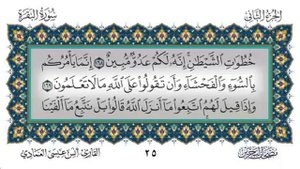 الجزء الثاني
سورة البقرة
خُطُوَٰتِ ٱلشَّيْطَٰنِ إِنَّهُۥ لَكُمْ عَدُوٌّ مُّبِينٌ ١٦٨ إِنَّمَا يَأْمُرُكُم
بِٱلسُّوٓءِ وَٱلْفَحْشَآءِ وَأَن تَقُولُوا۟ عَلَى ٱللَّهِ مَا لَا تَعْلَمُونَ ١٦٩
وَإِذَا قِيلَ لَهُمُ ٱتَّبِعُوا۟ مَآ أَنزَلَ ٱللَّهُ قَالُوا۟ بَلْ نَتَّبِعُ مَآ أَلْفَيْنَا
٢٥
القارئ أنس عيسى العمادي